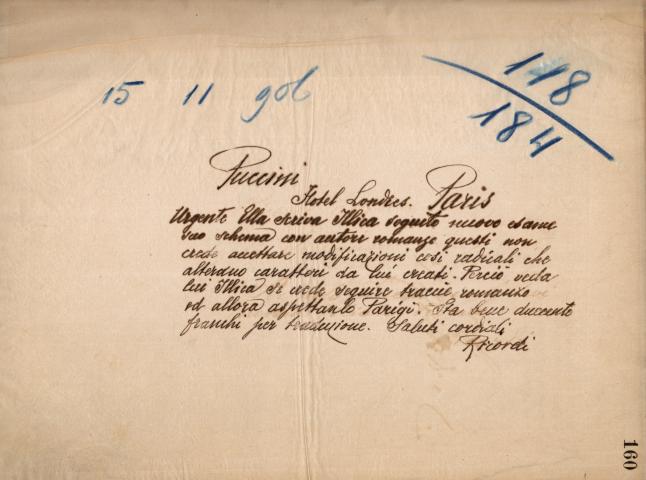 15 11 906
118
184
Puccini
Hotel Londres. Paris
Urgente Ella scriva Illica seguito nuovo esame
suo schema con autore romanzo questi non
crede accettare modificazioni così radicali che
alterano caratteri da lui creati. Perciò veda
lui Illica se crede seguire traccie romanzo
ed allora aspettanlo Parigi. Sta bene duecento
franchi per traduzione. Saluti cordiali
Ricordi
160